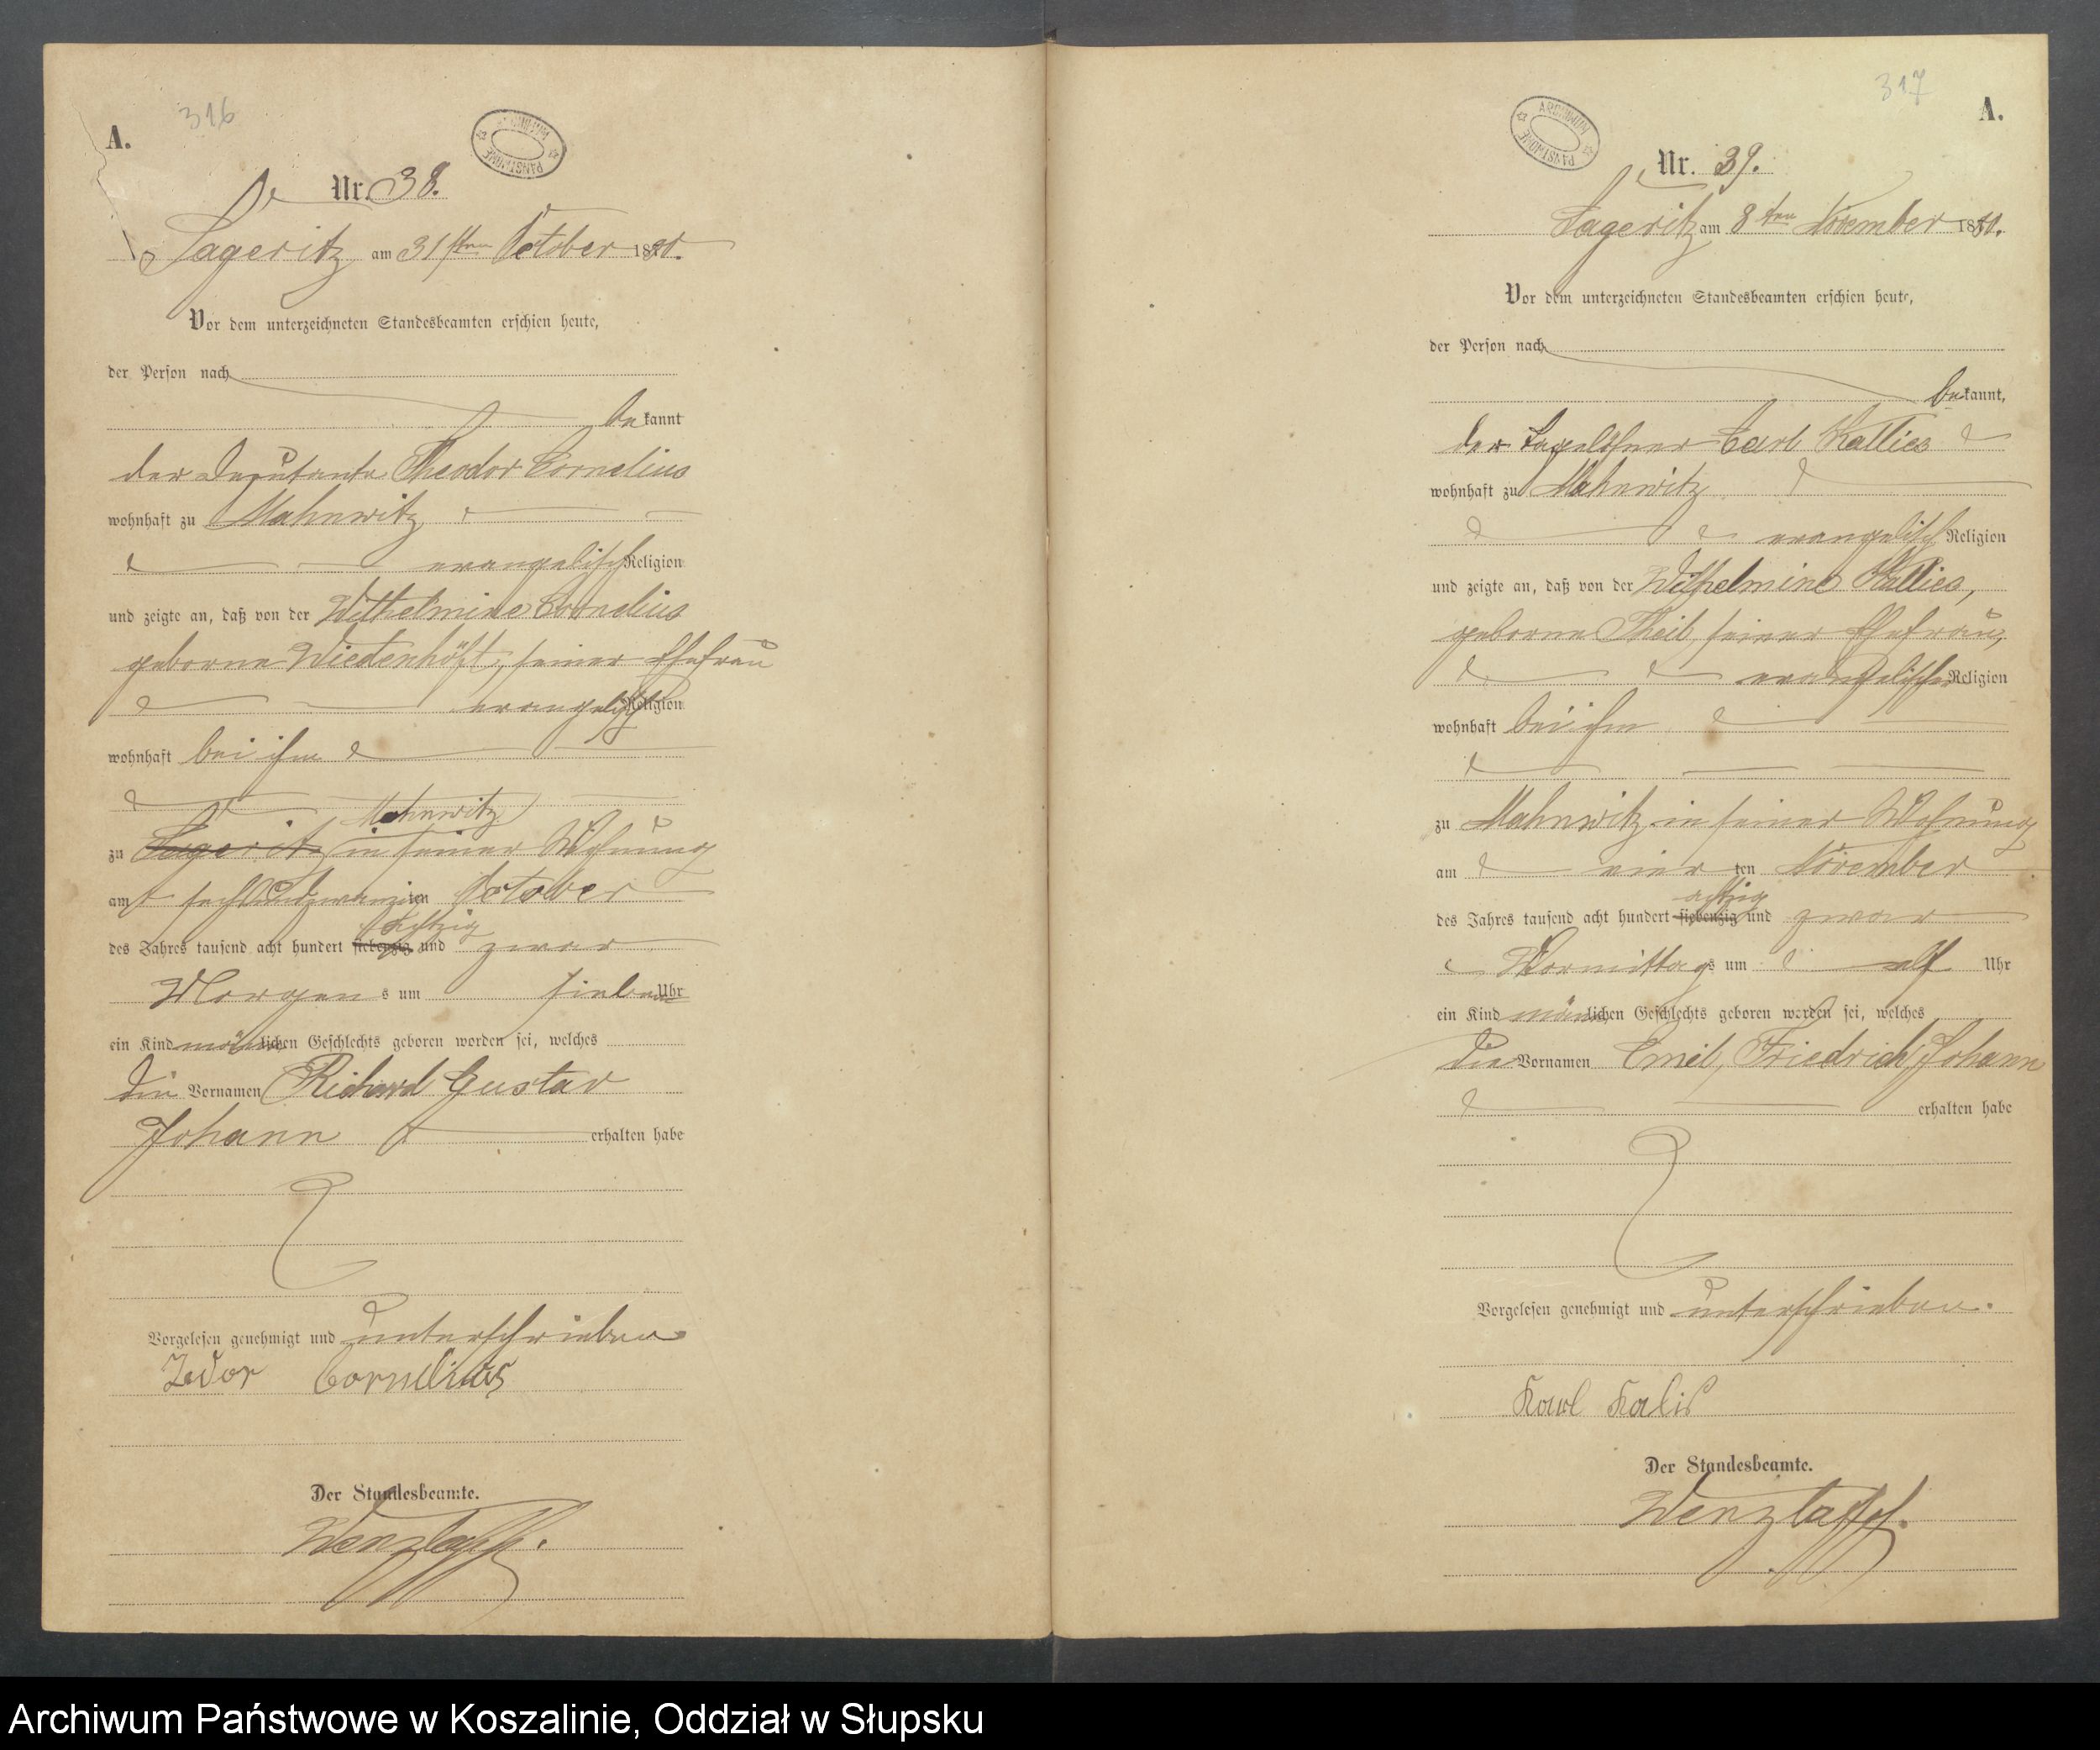 316
A.
Nr. 38.
Sageritz am 31sten October 1880.
Vor dem unterzeichneten Standesbeamten erschien heute,
der Person nach
bekannt
der Deputante Theodor Cornelius
wohnhaft zu Mahnwitz
evangelisch Religion
und zeigte an, daß von der Wilhelmine Cornelius
geborne Wiedenhöft, seiner Ehefrau
evangelisch Religion
wohnhaft bei ihm
Mahnwitz
zu Sageritz in seiner Wohnung
am sechsundzwanzigten October
achtzig
des Jahres tausend acht hundert siebenzig und zwar
Morgens um sieben Uhr
ein Kind männlichen Geschlechts geboren worden sei, welches
die Vornamen Richard Gustav
Johann erhalten habe
Vorgelesen genehmigt und unterschrieben
Tedor Cornelius
Der Standesbeamte.
Wenzlaff.
317
A.
ARCHIWUM PAŃSTWOWE
Nr. 39.
Sageritz am 8ten November 1880.
Vor dem unterzeichneten Standesbeamten erschien heute,
der Person nach
bekannt,
der Tagelöhner Carl Kallies
wohnhaft zu Mahnwitz
evangelisch Religion
und zeigte an, daß von der Wilhelmine Kallies,
geborne Theil, seiner Ehefrau,
evangelischer Religion
wohnhaft bei ihm
zu Mahnwitz in seiner Wohnung
am vier ten November
achtzig
des Jahres tausend acht hundert siebenzig und zwar
Vormittags um elf Uhr
ein Kind männlichen Geschlechts geboren worden sei, welches
die Vornamen Emil, Friedrich, Johann
erhalten habe
Vorgelesen genehmigt und unterschrieben.
Karl Kalis
Der Standesbeamte.
Wenzlaff.
Archiwum Państwowe w Koszalinie, Oddział w Słupsku